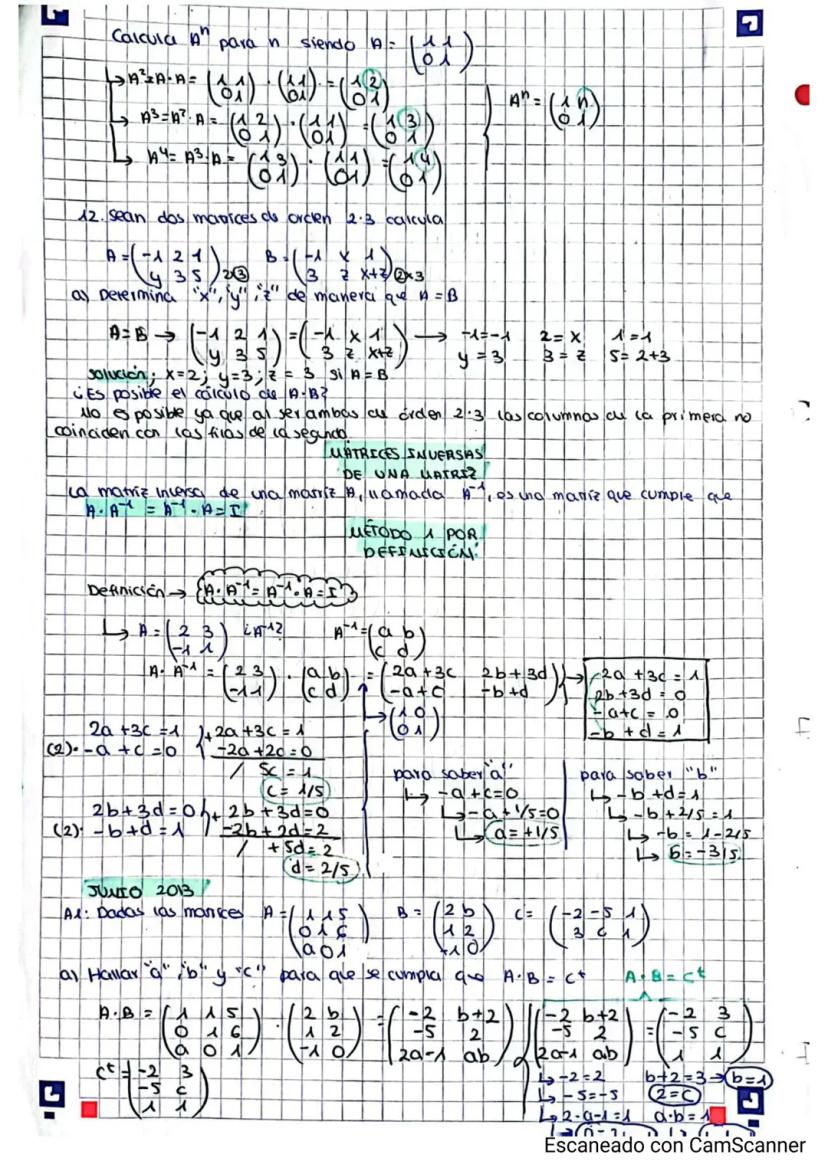 Calcula Aⁿ para n siendo A = (1 1 / 0 1)
↳ A² = A·A = (1 1 / 0 1) · (1 1 / 0 1) = (1 2 / 0 1)
Aⁿ = (1 n / 0 1)
↳ A³ = A²·A = (1 2 / 0 1) · (1 1 / 0 1) = (1 3 / 0 1)
↳ A⁴ = A³·A = (1 3 / 0 1) · (1 1 / 0 1) = (1 4 / 0 1)
12. Sean dos matrices de orden 2·3 calcula
A = (-1 2 1 / y 3 5) 2x3 B = (-1 x 1 / 3 z x+z) 2x3
a) Determina "x", "y", "z" de manera que A = B
A = B → (-1 2 1 / y 3 5) = (-1 x 1 / 3 z x+z) → -1=-1 2=x 1=1
y=3 3=z 5=2+3
solución; x=2; y=3; z=3 si A=B
¿Es posible el cálculo de A·B?
No es posible ya que al ser ambas de órden 2·3 las columnas de la primera no
coinciden con las filas de la segunda.
MATRICES INVERSAS
DE UNA MATRIZ
La matriz inversa de una matriz A, llamada A⁻¹, es una matriz que cumple que
A·A⁻¹ = A⁻¹·A = I
MÉTODO 1 POR
DEFINICIÓN:
Definición → A·A⁻¹ = A⁻¹·A = I
↳ A = (2 3 / -1 1) ¿A⁻¹? A⁻¹ = (a b / c d)
A·A⁻¹ = (2 3 / -1 1) · (a b / c d) = (2a+3c 2b+3d / -a+c -b+d) → 2a+3c=1
2b+3d=0
-a+c=0
-b+d=1
→ (1 0 / 0 1)
2a+3c=1 + 2a+3c=1
(2)· -a+c=0 -2a+2c=0
/ 5c=1
c=1/5
2b+3d=0 + 2b+3d=0
(2)· -b+d=1 -2b+2d=2
/ +5d=2
d=2/5
para saber "a"
↳ -a+c=0
↳ -a+1/5=0
↳ a=+1/5
para saber "b"
↳ -b+d=1
↳ -b+2/5=1
↳ -b=1-2/5
↳ b=-3/5
JUNIO 2013
A1: Dadas las matrices A = (1 1 5 / 0 1 6 / a 0 1) B = (2 b / 1 2 / -1 0) C = (-2 -5 1 / 3 c 1)
a) Hallar "a", "b" y "c" para que se cumpla que A·B = Cᵗ A·B = Cᵗ
A·B = (1 1 5 / 0 1 6 / a 0 1) · (2 b / 1 2 / -1 0) = (-2 b+2 / -5 2 / 2a-1 ab) (-2 b+2 / -5 2 / 2a-1 ab) = (-2 3 / -5 c / 1 1)
Cᵗ = (-2 3 / -5 c / 1 1)
↳ -2=2 b+2=3 → b=1
↳ -5=-5 2=c
↳ 2·a-1=1 a·b=1
Escaneado con CamScanner